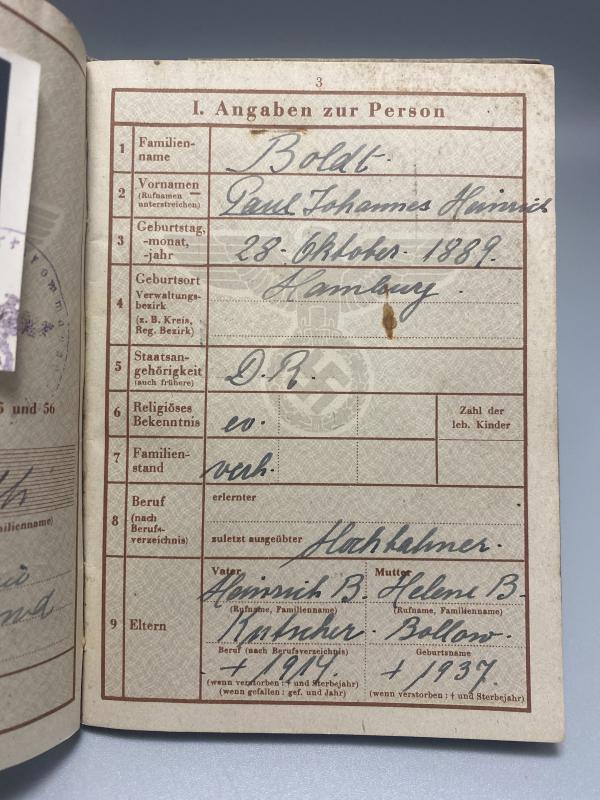 3
I. Angaben zur Person
1 Familien-
name
Boldt.
2 Vornamen
(Rufnamen
unterstreichen)
Paul Johannes Heinrich
3 Geburtstag,
-monat,
-jahr
28. Oktober. 1889.
4 Geburtsort
Verwaltungs-
bezirk
(z. B. Kreis,
Reg. Bezirk)
Hamburg.
5 Staatsan-
gehörigkeit
(auch frühere)
D. R.
6 Religiöses
Bekenntnis
ev.
Zahl der
leb. Kinder
7 Familien-
stand
verh.
8 Beruf
(nach
Berufs-
verzeichnis)
erlernter
zuletzt ausgeübter
Hochbahner.
9 Eltern
Vater
Heinrich B.
(Rufname, Familienname)
Kutscher.
Beruf (nach Berufsverzeichnis)
+ 1914.
(wenn verstorben: † und Sterbejahr)
(wenn gefallen: gef. und Jahr)
Mutter
Helene B.
(Rufname, Familienname)
Bollow.
Geburtsname
+ 1937.
(wenn verstorben: † und Sterbejahr)
und 56